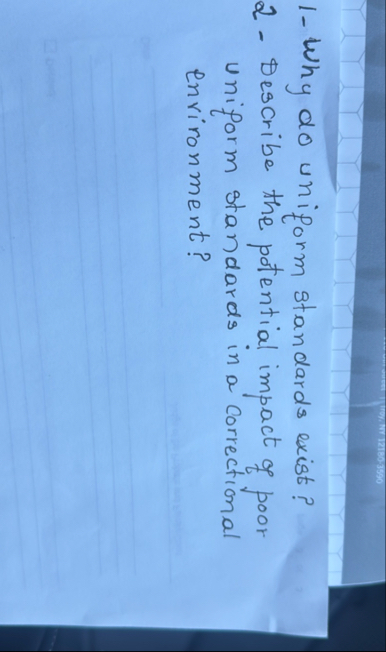 1- Why do uniform standards exist?
2- Describe the potential impact of poor
uniform standards in a correctional
environment?